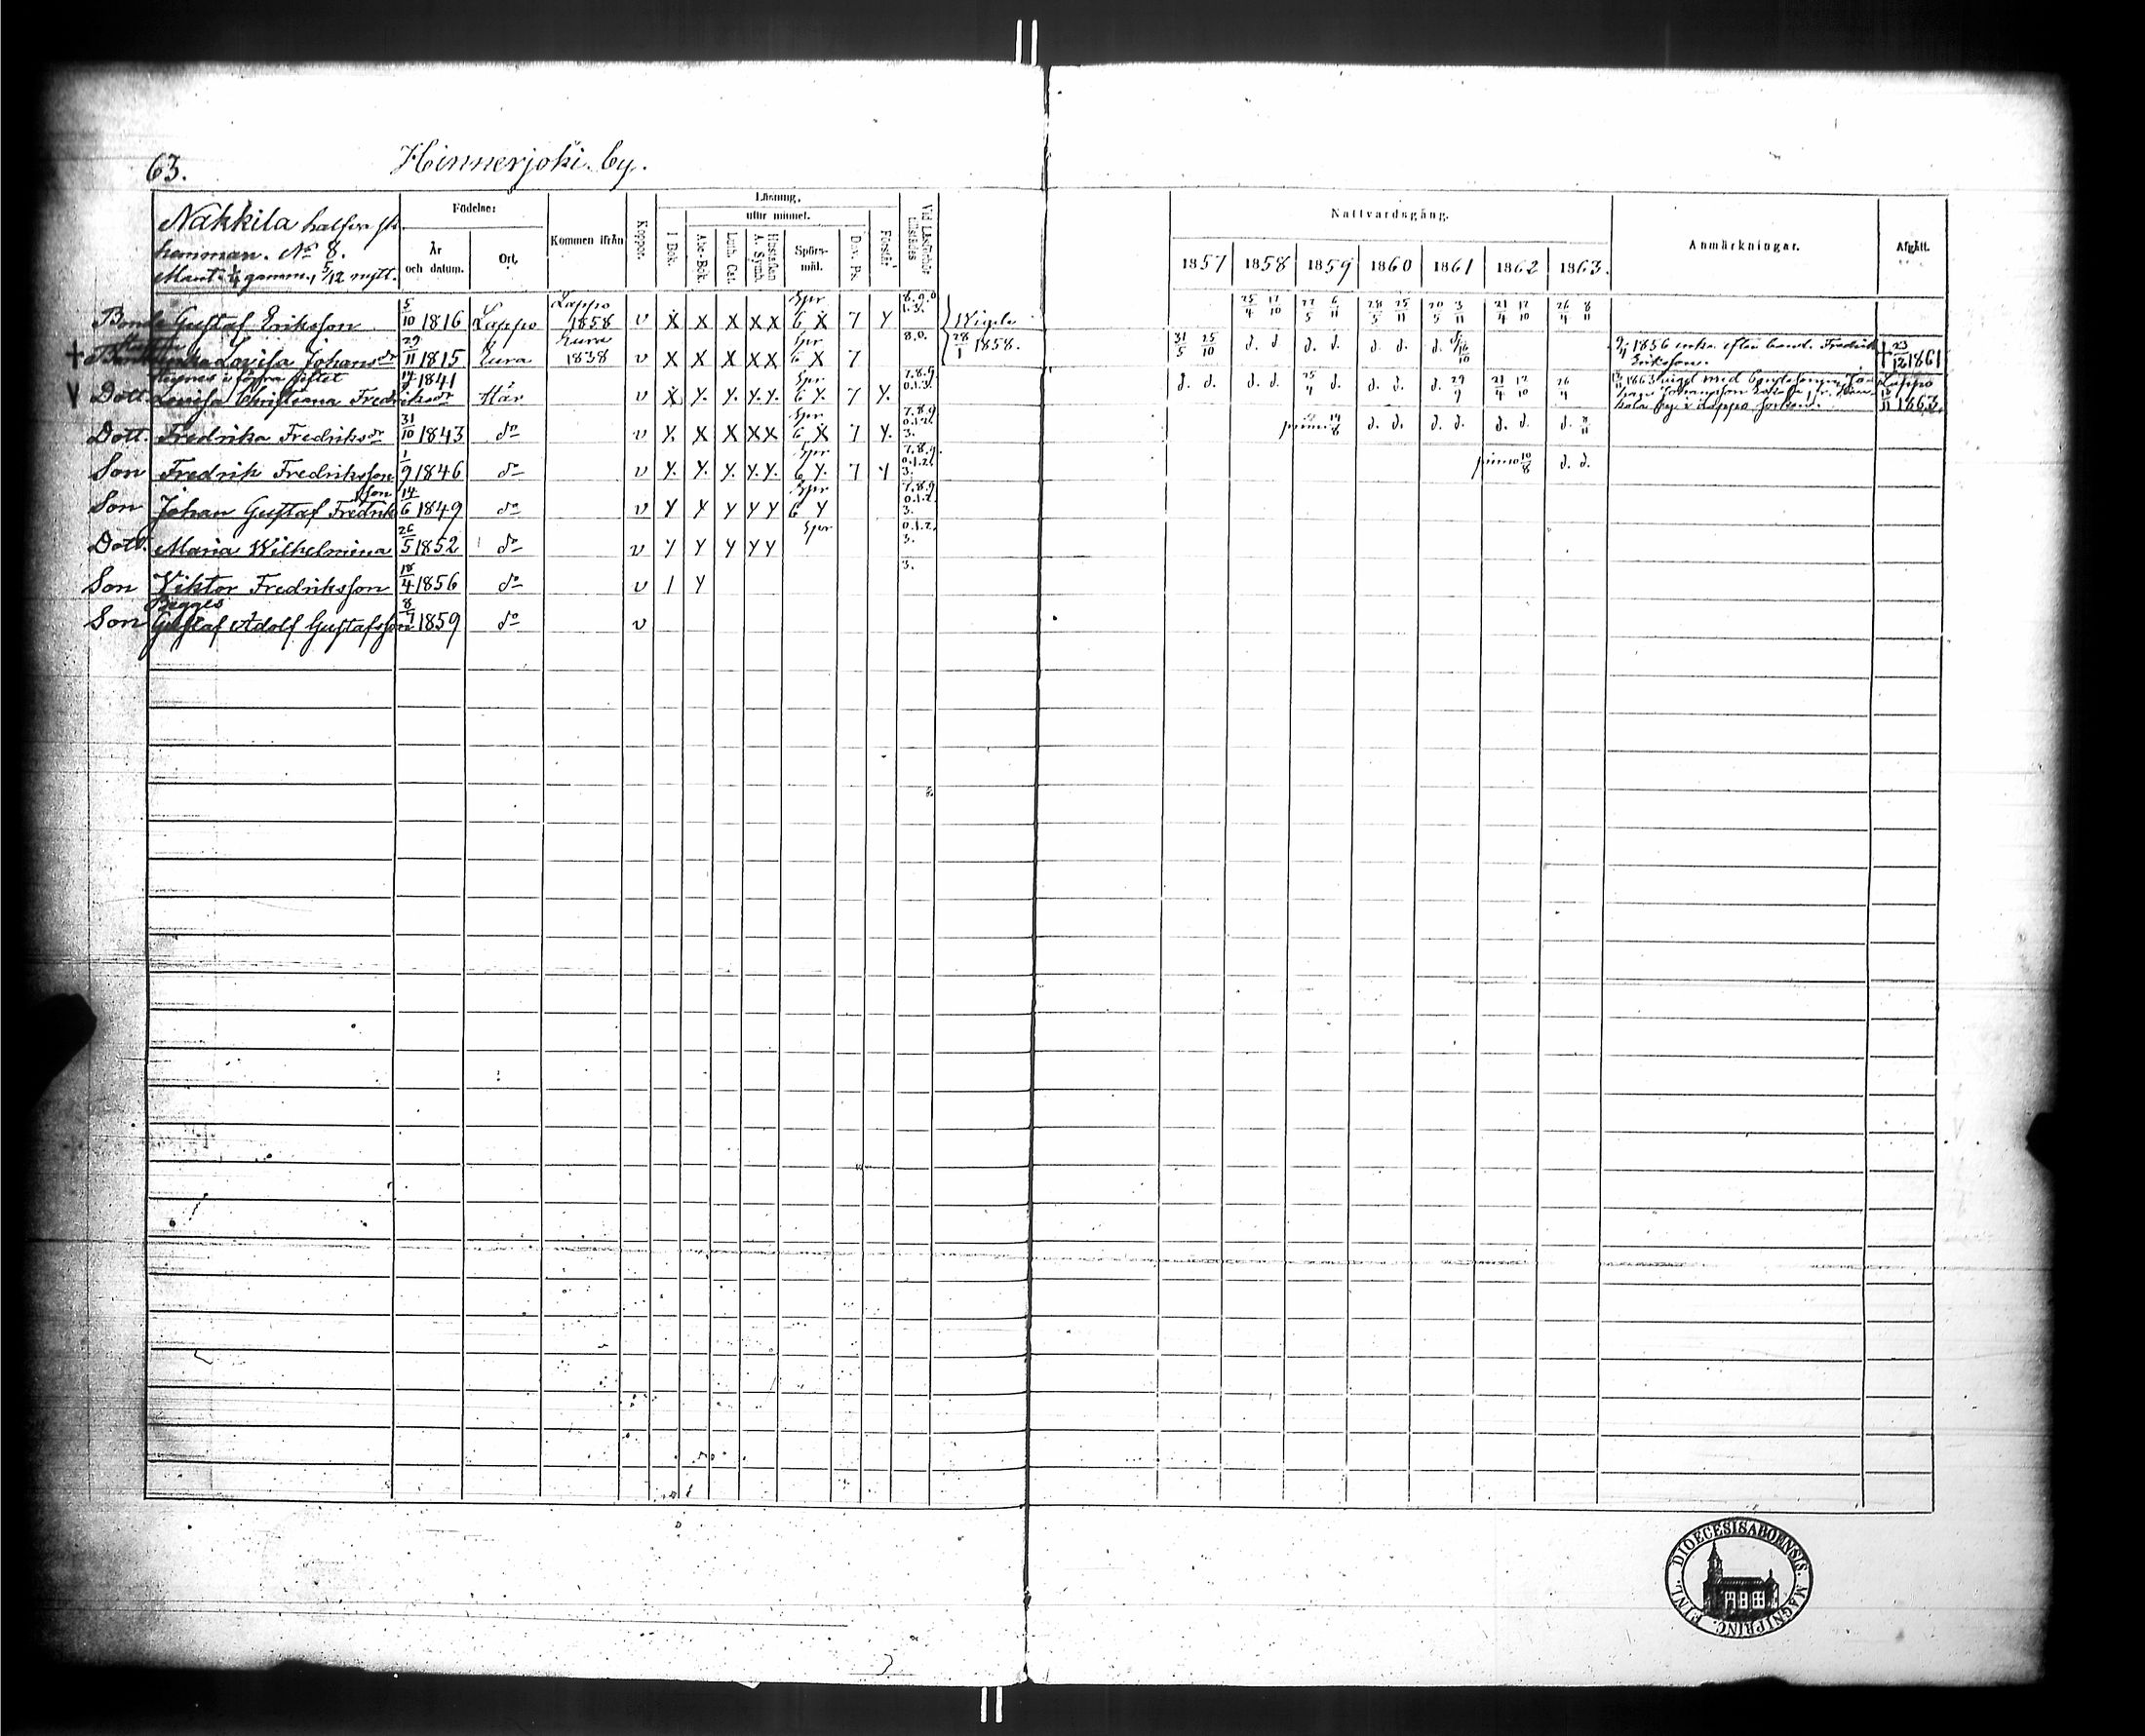 63.
Hinnerjoki by.
Nakkila
hemman. No 8.
Mant. 1/4 gamm., 5/12 nytt.
Födelse:
År och datum.
Ort.
Kommen ifrån
Koppor.
Läsning,
utur minnet.
I Bok.
Abc-Bok.
Luth. Cat.
Hustaflan
A. Symb.
Spörsmål.
Dav. Ps.
Förstår
Vid Läsförhör tillstädes
Nattvardsgång.
1857 1858 1859 1860 1861 1862 1863.
Anmärkningar.
Afgått.
Bonde Gustaf Eriksson 5/10 1816 Lappo Lappo 1858 v X X X X X Spr 6 X 7 Y 8.9.0 1.3. } Vigde 25/4 17/10 22/5 6/11 28/5 25/11 20/5 3/11 21/4 12/10 26/4 8/11
† Lovisa Johansdr 29/11 1815 Eura Eura 1838 v X X X X X Spr 6 X 7 8.0. 28/1 1858. 31/5 25/10 d. d. d. d. d. d. d. 1856 enka efter bond. Fredrik Eriksson. † 23/12 1861
V Dott. Lovisa Christiana Fredriksdr 1841 Här v X Y. Y. Y. Y. Spr 6 Y. 7 Y. 7.8.9 0.1.3. d. d. d. d. 25/4 d. d. d. d. 29/9 21/4 12/10 26/4 1863 vigd med Lappo 1863.
Dott. Fredrika Fredriksdr 31/10 1843 do v Y. X X X X Spr 6 X 7 Y. 7.8.9 0.1.2. 3. 14/8 d. d. d. d. d. d. d.
Son Fredrik Fredriksson 1/9 1846 do v Y. Y. Y. Y. Y. Spr 6 Y. 7 Y 7.8.9. 0.1.2. 3. primo 10/8 d. d.
Son Johan Gustaf Fredriksson 14/6 1849 do v Y Y Y Y Y Spr 6 Y 7.8.9 0.1.2. 3.
Dott. Maria Wilhelmina 26/5 1852 do v Y Y Y Y Y Spr 0.1.2. 3.
Son Viktor Fredriksson 18/4 1856 do v 1 Y 3.
Begges
Son Gustaf Adolf Gustafsson 8/7 1859 do v
FINL. DIOECESIS ABOENSIS. MAGNI PRINC.